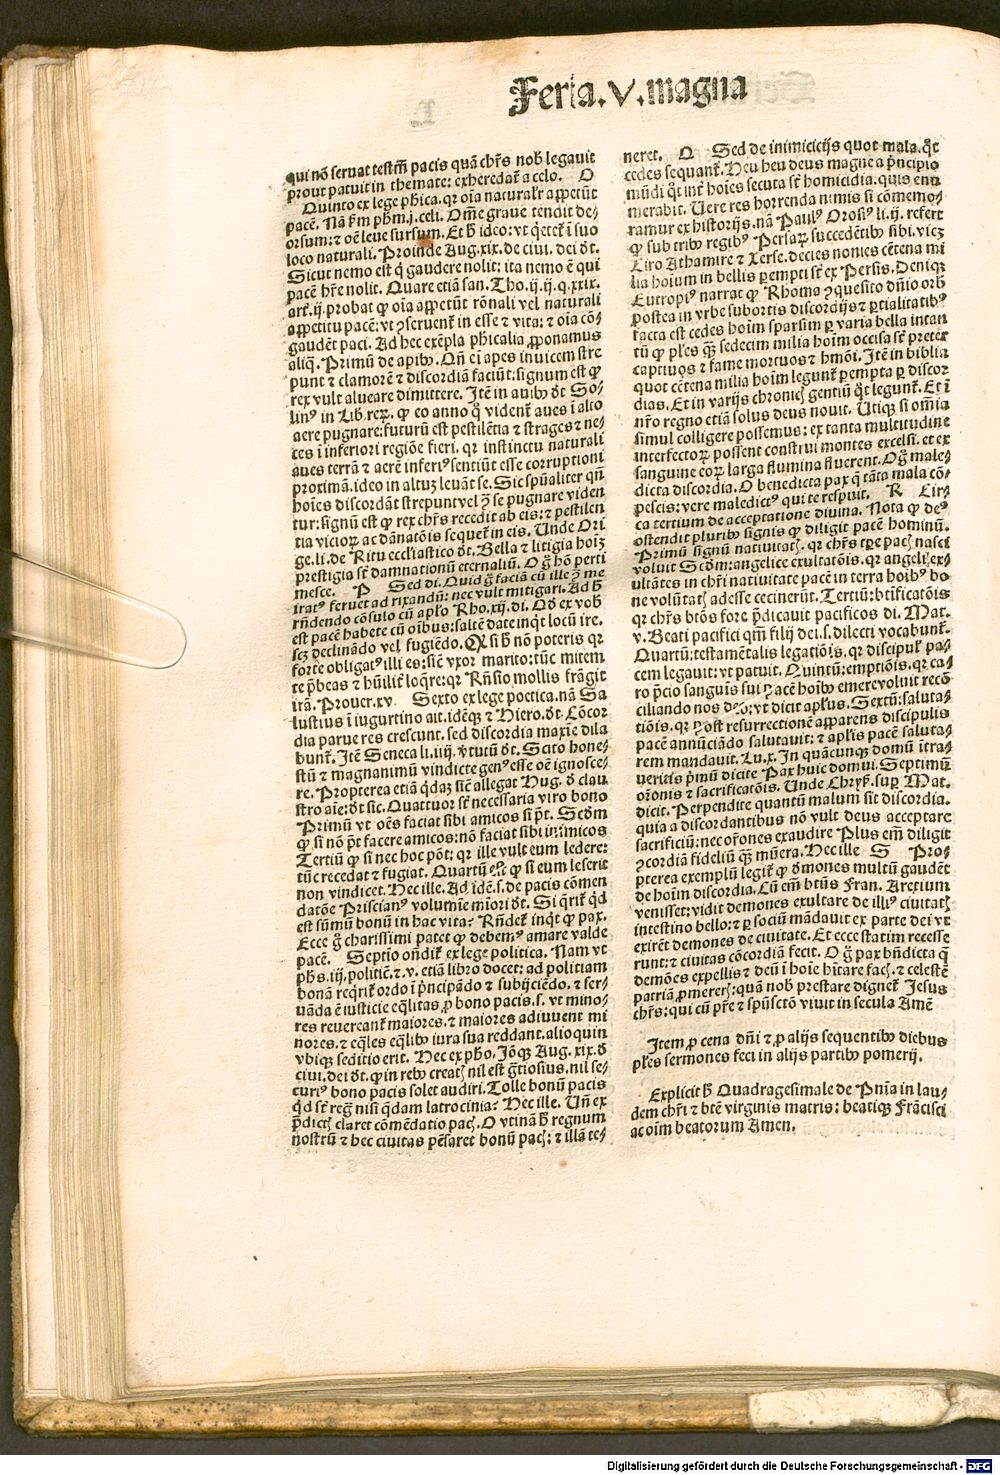 Feria. V. magna
qui nõ servat testm̃ pacis quã chr̃s nob̃ legavit
prout patuit in themate: exheredat̃ a celo. O
Quinto ex lege ph̃ica. qr oĩa naturalr̃ appetũt
pacẽ. Nã pm̃ ph̃m.j.celi. Om̃e grave tendit de⸗
orsum: ⁊ oẽ leve sursum. Et h̃ ideo: vt q̃etet̃ ĩ suo
loco naturali. Proinde Aug. xix. de ciui. dei ðt.
Sicut nemo est q̃ gaudere nolit: ita nemo ẽ qui
pacẽ hr̃e nolit. Quare etiã san. Tho. ij. ij. q. xxix.
art̃. ij. probat ꝙ oĩa appetũt rõnali vel naturali
appetitu pacẽ: vt ꝯseruent̃ in esse ⁊ vita: ⁊ oĩa cõ⸗
gaudẽt paci. Ad hec exẽpla ph̃icalia ꝓponamus
aliq̃. Primũ de apibꝰ. Qñ em̃ apes inuicem stre
punt ⁊ clamorẽ ⁊ discordiã faciũt: signum est ꝙ
rex vult alueare dimittere. Itẽ in auibꝰ ðt So⸗
linꝰ in Lib. reꝝ. ꝙ eo anno q̊ vident̃ aues ĩ alto
aere pugnare: futurũ est pestilẽtia ⁊ strages ⁊ ne⸗
ces ĩ inferiori regiõe fieri. qr instinctu naturali
aues terrã ⁊ aerẽ inferiꝰ sentiũt esse corruptioni
proximã. ideo in altuꝫ leuãt se. Sic spũaliter qñ
hoĩes discordãt strepunt vel ꝯ̃ se pugnare viden
tur: signũ est ꝙ rex chr̃s recedit ab eis: ⁊ pestilen
tia vicioꝝ ac dãnatõis sequet̃ in eis. Unde Ori
ge. li. de Ritu eccl̃iastico ðt. Bella ⁊ litigia hoĩꝫ
prestigia st̃ damnationũ eternaliũ. O g̊ hõ perti
mesce. P Sed di. Quid g̊ faciã cũ ille ꝯ̃ me
iratꝰ feruet ad rixandũ: nec vult mitigari. Ad h̃
rñdendo cõsulo cũ apl̃o Rho. xij. di. Qð ex vob̃
est pacẽ habete cũ oĩbus: saltẽ date inqt̃ locũ ire.
scꝫ declinãdo vel fugiẽdo. Qð si h̃ nõ poteris qr
forte obligatꝰ illi es: sic̃ vxor marito: tũc mitem
te p̃beas ⁊ hũilit̃ loq̃re: qr Rñsio mollis frãgit
irã. Prouer. xv. Sexto ex lege poetica. nã Sa
lustius ĩ iugurtino ait. idẽqꝫ ⁊ Hiero. ðt. Cõcor
dia parue res crescunt. sed discordia maxĩe dila
bunt̃. Itẽ Seneca li. iiij. ꝟtutũ ðt. Sato hone⸗
stũ ⁊ magnanimũ vindicte genꝰ esse oẽ ignosce⸗
re. Propterea etiã q̃daꝫ sic̃ allegat Hug. ð clau
stro aĩe: ðt sic. Quattuor st̃ necessaria viro bono
Primũ vt oẽs faciat sibi amicos si p̃t. Scðm
ꝙ si nõ p̃t facere amicos: nõ faciat sibi inimicos
Tertiũ ꝙ si nec hoc põt: qr ille vult eum ledere:
tũc recedat ⁊ fugiat. Quartũ est ꝙ si eum leserit
non vindicet. Hec ille. Ad idẽ. s. de pacis cõmen
datõe Priscianꝰ volumĩe mĩori ðt. Si q̃rit̃ qð
est sũmũ bonũ in hac vita? Rñdet̃ inqt̃ ꝙ pax.
Ecce g̊ charissimi patet ꝙ debemꝰ amare valde
pacẽ. Septio oñdit̃ ex lege politica. Nam vt
ph̃s. iij. politic̃. ⁊. v. etiã libro docet: ad politiam
bonã req̃rit̃ ordo ĩ p̃ncipãdo ⁊ subijciẽdo. ⁊ ser⸗
uãda ẽ iusticie eq̃litas ꝓ bono pacis. s. vt mino⸗
res reuereant̃ maiores. ⁊ maiores adiuuent mi
nores. ⁊ eq̃les eq̃libꝰ iura sua reddant. alioquin
vbiqꝫ seditio erit. Hec ex ph̃o. Iõqꝫ Aug. xix. ð
ciui. dei ðt. ꝙ in rebꝰ creatꝭ nil est g̃tiosius. nil se⸗
curiꝰ bono pacis solet audiri. Tolle bonũ pacis
qð st̃ reg̃ nisi q̃dam latrocinia? Hec ille. Uñ ex
p̃dictꝭ claret cõmẽdatio pacꝭ. O vtinã h̃ regnum
nostrũ ⁊ hec ciuitas pẽsaret bonũ pacꝭ: ⁊ illã te⸗
neret. Q Sed de inimicicijs quot mala. q̃t
cedes sequant̃. Heu heu deus magne a p̃ncipio
mũdi q̃t int̃ hoĩes secuta st̃ homicidia. quis enu
merabit. Uere res horrenda nimis si cõmemo⸗
ramur ex historijs. nã Paulꝰ Orosiꝰ li. ij. refert
ꝙ sub tribꝰ regibꝰ Persaꝝ succedẽtibꝰ sibi. vicꝫ
Ciro Athamire ⁊ Xerse. decies nonies cẽtena mi
lia hoĩum in bellis ꝑempti st̃ ex Persis. Deniqꝫ
Eutropiꝰ narrat ꝙ Rhoma ꝯquesito dñio orb̃
postea in vrbe subortis discordijs ⁊ ꝑtialitatibꝰ
facta est cedes hoĩm sparsim ꝑ varia bella intan
tũ ꝙ pl̃es qꝫ̃ sedecim milia hoĩm occisa st̃ preter
captiuos ⁊ fame mortuos ⁊ hmõi. Itẽ in biblia
quot cẽtena milia hoĩm legunt̃ ꝑempta ꝑ discor
dias. Et in varijs chronicꝭ gentiũ q̃t legunt̃. Et ĩ
nr̃o regno etiã solus deus nouit. Utiqꝫ si om̃ia
simul colligere possemus: ex tanta multitudine
interfectoꝝ possent construi montes excelsi. et ex
sanguine eoꝝ larga flumina fluerent. O g̊ male⸗
dicta discordia. O benedicta pax q̃ tãta mala cõ⸗
pescis: vere maledictꝰ qui te respuit. R Cir⸗
ca tertium de acceptatione diuina. Nota ꝙ deꝰ
ostendit pluribꝰ signis ꝙ diligit pacẽ hominũ.
Primũ signũ natiuitatꝭ. qr chr̃s tp̃e pacꝭ nasci
voluit Scðm: angelice exultatõis. qr angeli ex⸗
ultãtes in chr̃i natiuitate pacẽ in terra hoĩbꝰ bo
ne volũtatꝭ adesse cecinerũt. Tertiũ: btĩficatõis
qr chr̃s btõs fore p̃dicauit pacificos di. Mat.
v. Beati pacifici qm̃ filij dei. s. dilecti vocabunt̃.
Quartũ: testamẽtalis legatiõis. qr discipul̃ pa⸗
cem legauit: vt patuit. Quintũ: emptiõis. qr ca⸗
ro p̃cio sanguis sui ꝯ pacẽ hoĩbꝰ emere voluit recõ
ciliando nos deo: vt dicit apl̃us. Sextũ: saluta⸗
tiõis. qr post resurrectionẽ apparens discipulis
pacẽ annũciãdo salutauit: ⁊ apl̃is pacẽ saluta⸗
rem mandauit. Lu. x. In quãcunqꝫ domũ ĩtra⸗
ueritis p̃mũ dicite Pax huic domui. Septimũ
orõnis ⁊ sacrificatõis. Unde Chrys̃. sup Mat.
dicit. Perpendite quantũ malum sit discordia.
quia a discordantibus nõ vult deus acceptare
sacrificiũ: nec or̃ones exaudire Plus em̃ diligit
ꝯcordiã fideliũ qꝫ̃ mũera. Hec ille S Pro⸗
pterea exemplũ legit̃ ꝙ ðmones multũ gaudẽt
de hoĩm discordia. Cũ em̃ btũs Fran. Aretium
venisset: vidit demones exultare de illiꝰ ciuitatꝭ
intestino bello: ⁊ ꝑ sociũ mãdauit ex parte dei vt
exirẽt demones de ciuitate. Et ecce statim recesse
runt: ⁊ ciuitas cõcordiã fecit. O g̊ pax bñdicta q̃
demões expellis ⁊ deũ ĩ hoĩe hr̃itare facꝭ. ⁊ celestẽ
patriã ꝓmererꝭ: quã nob̃ prestare dignet̃ Jesus
chr̃s: qui cũ pr̃e ⁊ spũsctõ viuit in secula Amẽ
Item ꝓ cena dñi ⁊ ꝓ alijs sequentibꝰ diebus
pl̃es sermones feci in alijs partibꝰ pomerij.
Explicit h̃ Quadragesimale de Pñia in lau⸗
dem chr̃i ⁊ btẽ virginis matris: beatiqꝫ Frãcisci
ac oĩm beatorum Amen.
Digitalisierung gefördert durch die Deutsche Forschungsgemeinschaft - DFG